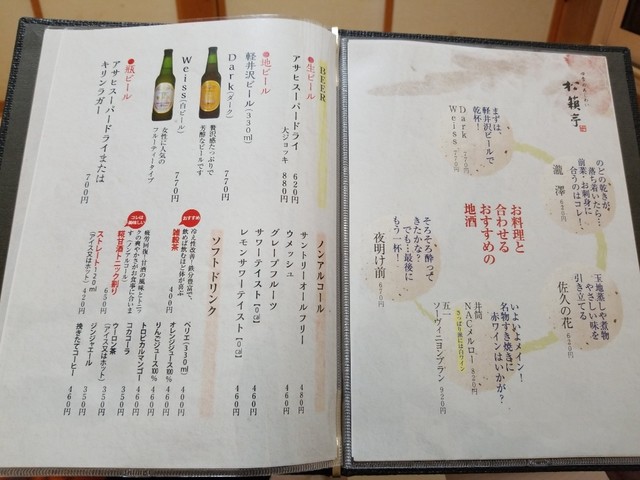 松籟亭
お料理と
合わせる
おすすめの
地酒
まずは、
軽井沢ビールで
乾杯!
Dark 770円
Weiss 770円
のどの乾きが、
落ち着いたら…
前菜・お刺身に
合うのはコレ!
瀧澤 620円
玉地蒸しや煮物
やさしい味を
引き立てる
佐久の花 620円
いよいよメイン!
名物すき焼きに
赤ワインはいかが?
井筒
NACメルロー 820円
さっぱり派には白ワイン
五一
ソーヴィニヨンブラン 920円
そろそろ酔って
きたかな?
でも…最後に
もう一杯!
夜明け前 670円
BEER
●生ビール
アサヒスーパードライ 620円
大ジョッキ 880円
●地ビール
軽井沢ビール(330ml)
Dark(ダーク) 770円
贅沢感たっぷりで
芳醇なビールです
Weiss(白ビール) 770円
女性に人気の
フルーティータイプ
●瓶ビール
アサヒスーパードライまたは
キリンラガー 700円
ノンアルコール
サントリーオールフリー 480円
ウメッシュ 460円
グレープフルーツ
サワーテイスト【0%】 460円
レモンサワーテイスト【0%】 460円
ソフトドリンク
おすすめ
冷え性改善!鉄分豊富で、
飲めば飲むほど体が喜ぶ
雑穀茶 400円
コレは美味しい
疲労回復!甘酒の風味とトニッ
クの爽やかさがお食事に合いま
す(ノンアルコール)
糀甘酒トニック割り 650円
ストレート120ml 420円
(アイス又はホット)
ペリエ(330ml) 460円
オレンジジュース100% 460円
りんごジュース100% 460円
トロピカルマンゴー 460円
コカコーラ 350円
ウーロン茶 350円
(アイス又はホット)
ジンジャエール 350円
挽きたてコーヒー 350円